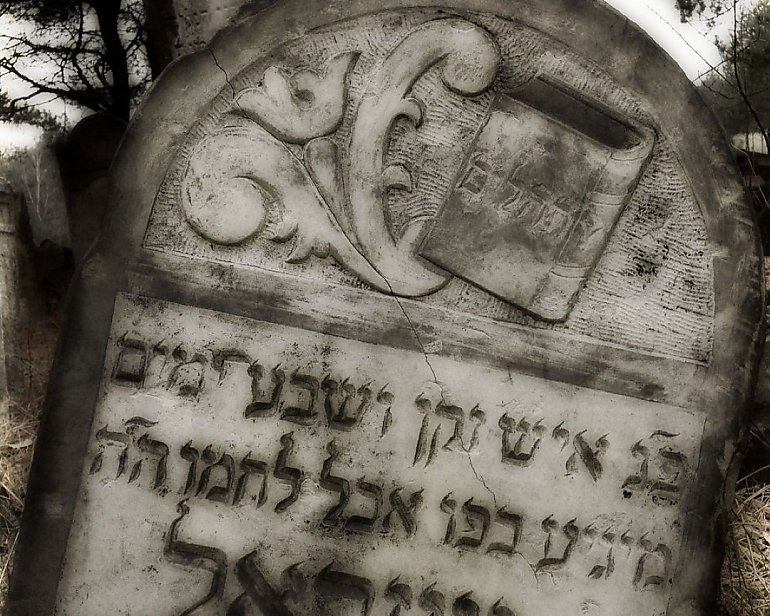 תהלים
פ״נ איש זקן ושבע ימים
מיגיע כפו אכל לחמו ה״ה
ישראל